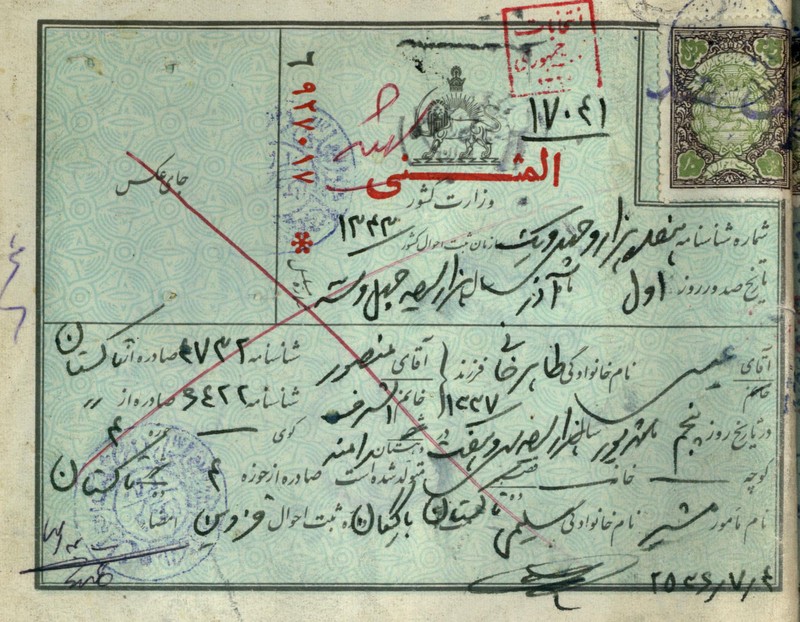 انتخابات
جمهوری
۱۷۰۴۱
۶ ۹۲۷۰۱۷
المثنی
وزارت کشور
سازمان ثبت احوال کشور
۱۳۴۳
جای عکس
شماره شناسنامه هفده هزار و چهل و یک
تاریخ صدور روز اول ماه آذر سال هزار و سیصد و چهل و سه
آقای خانم عیسی نام خانوادگی طاهرخانی فرزند آقای منصور شناسنامه ۷۳۲ صادره از تاکستان
۱۳۳۷ خانم اشرف شناسنامه ۶۴۲۲ صادره از
در تاریخ روز پنجم ماه شهریور سال هزار و سیصد و سی و هفت در دهستان رامند کوی
کوچه خانه متولد شده است صادره از حوزه ۴ تاکستان
نام مأمور مشیر نام خانوادگی سلیمی ثبت احوال قزوین امضاء
۲۵۳۶/۷/۴